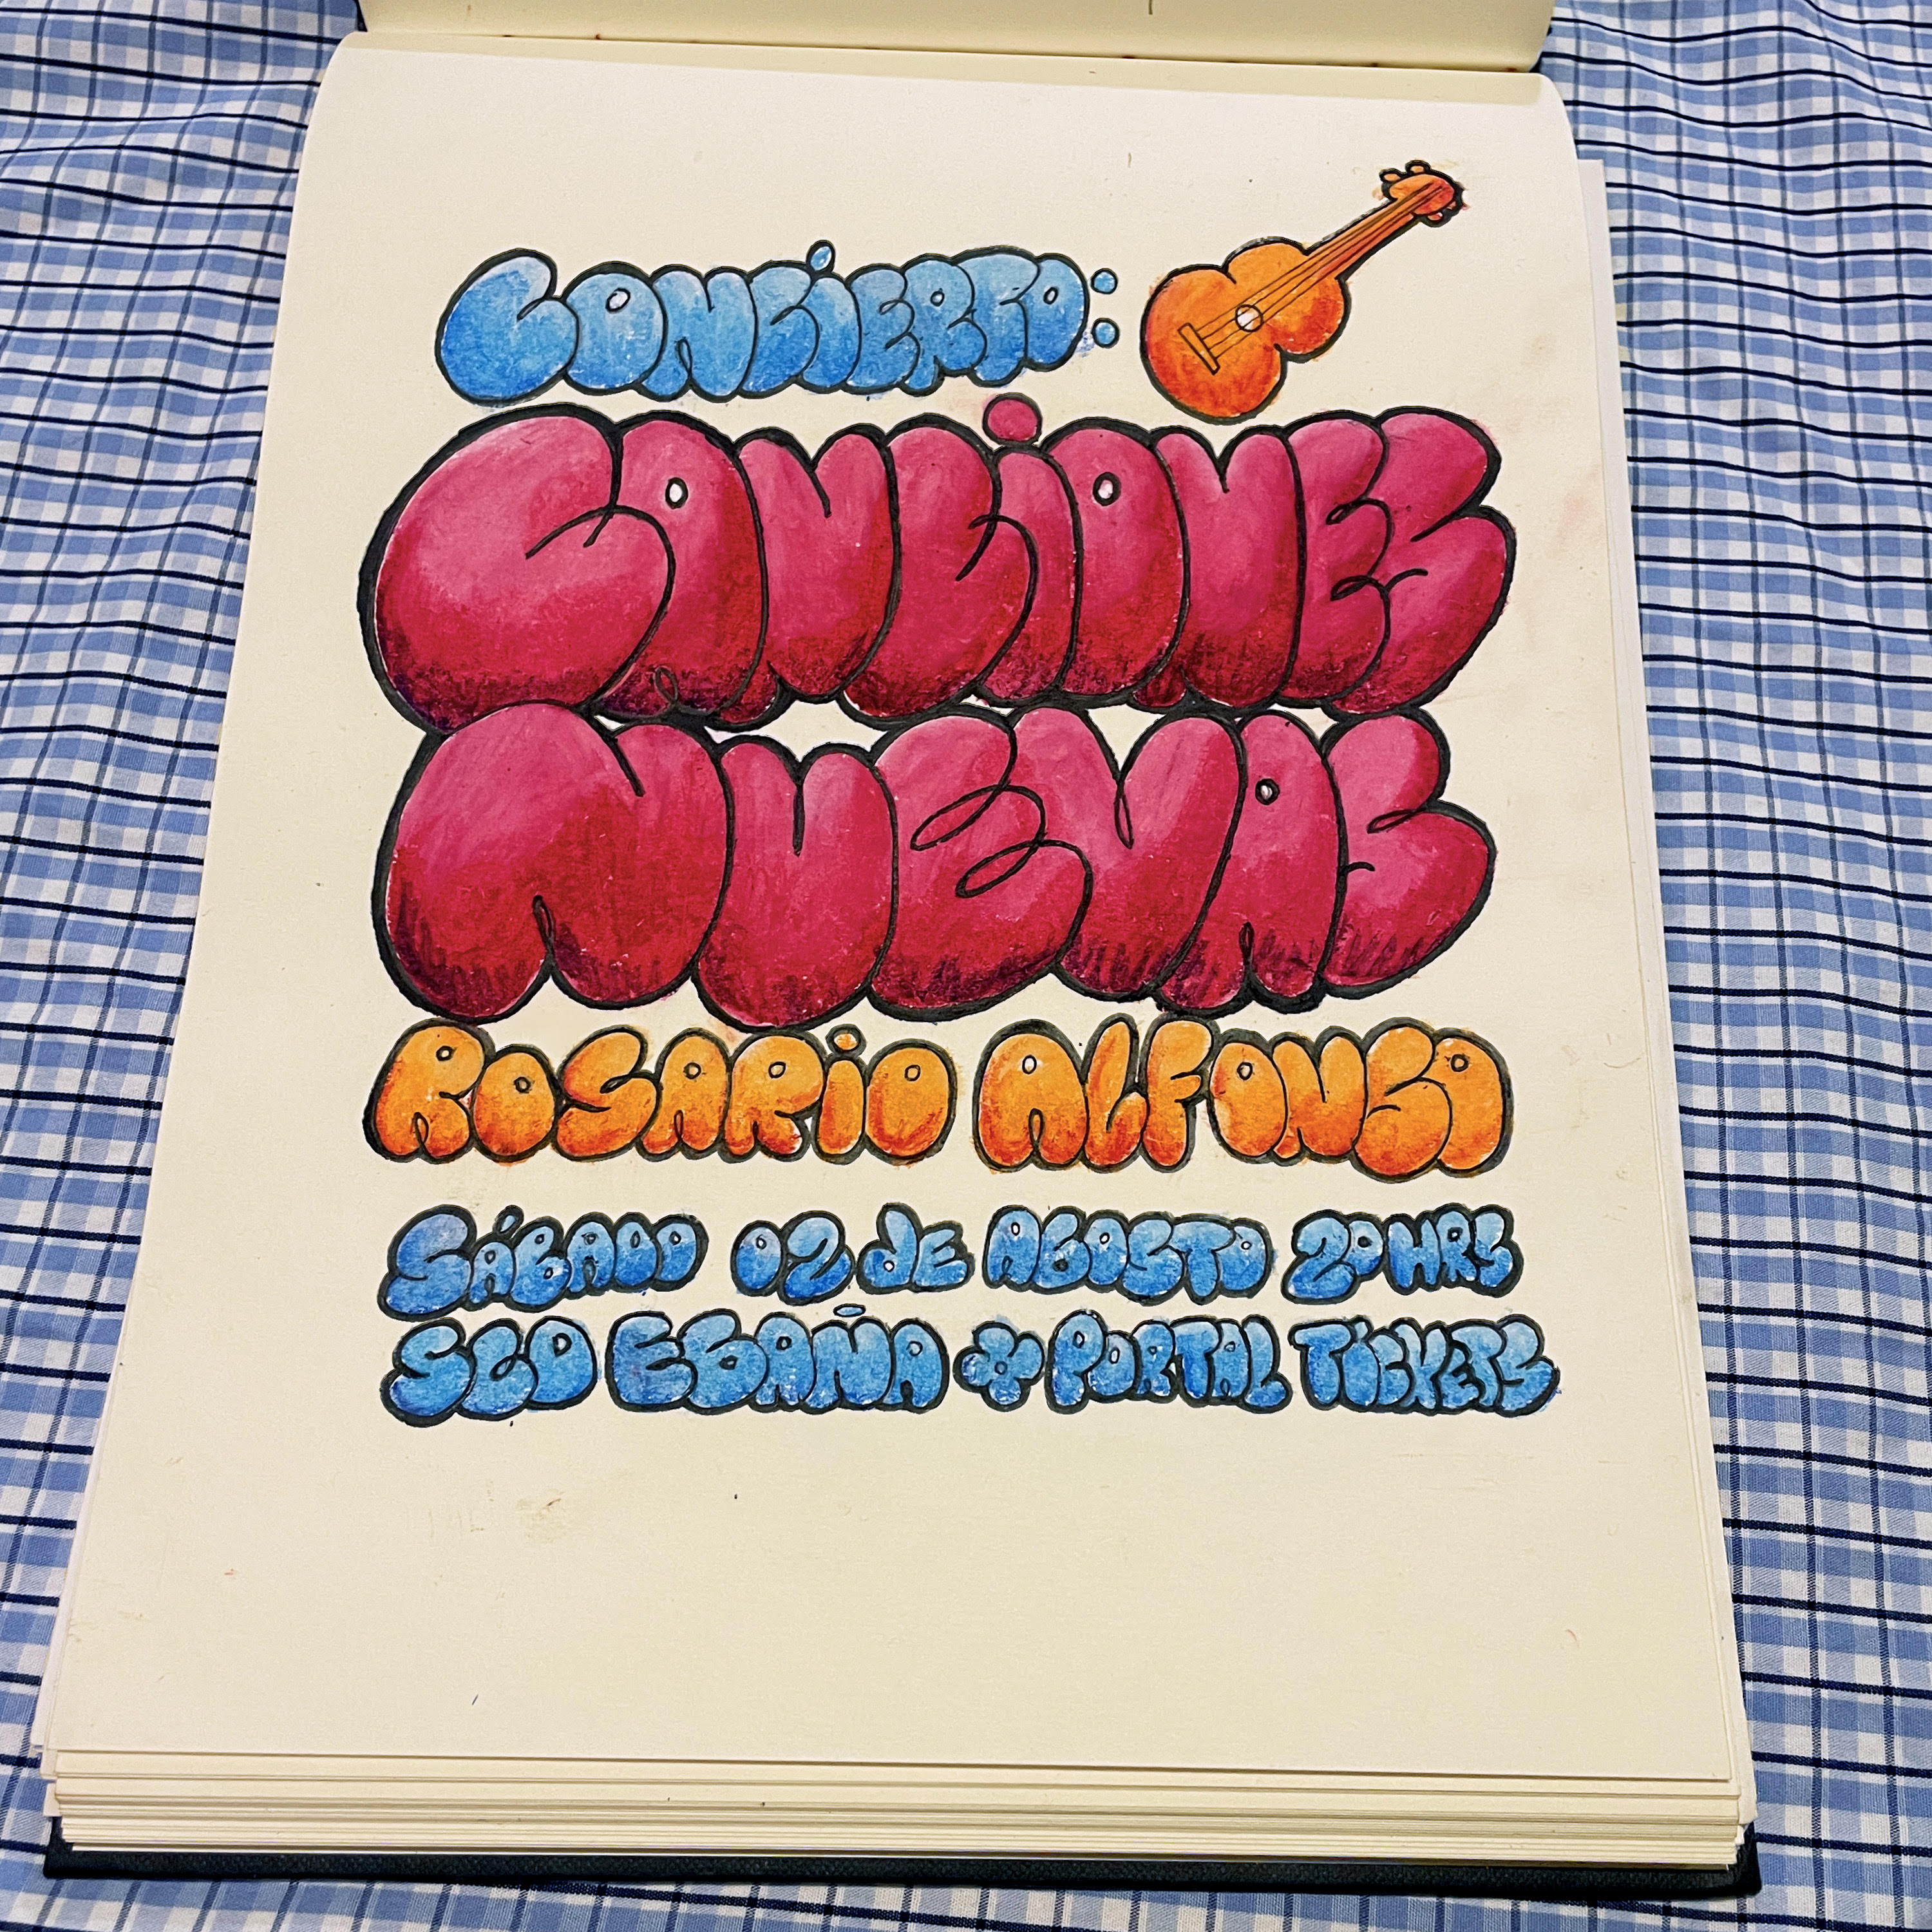 CONCIERTO:
CANCIONES
NUEVAS
ROSARIO ALFONSO
SÁBADO 02 DE AGOSTO 20HRS
SCD EGAÑA * PORTAL TICKETS